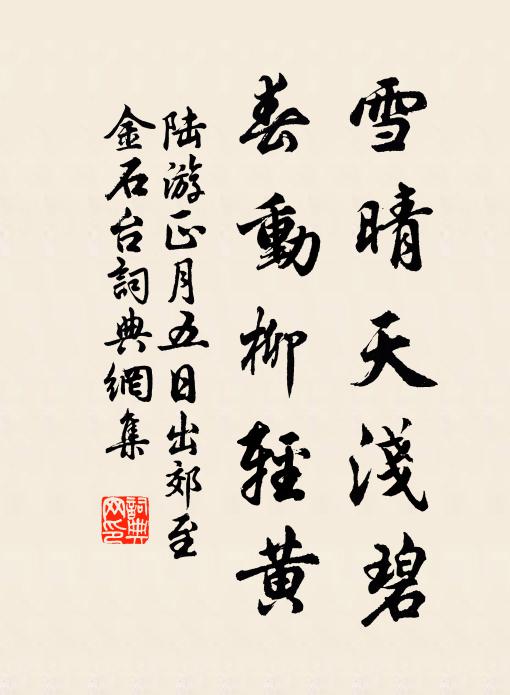 雪晴天淺碧
春動柳輕黄
陆游正月五日出郊至
金石台詞典網集
詞典
网印